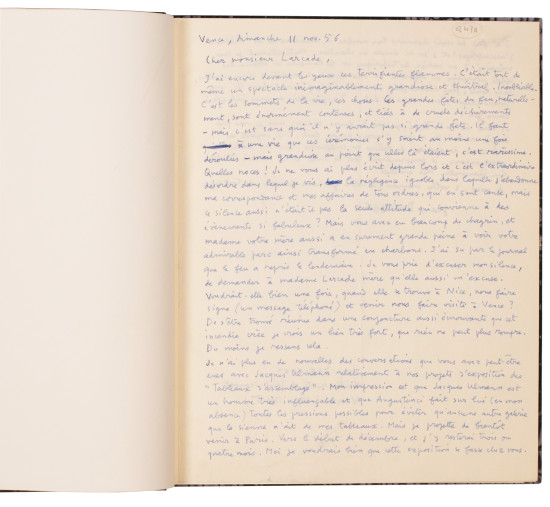 Vence, dimanche 11 nov. 56
Cher monsieur Larcade,
J'ai encore devant les yeux ces terrifiantes flammes. C'était tout de
même un spectacle inimaginablement grandiose et spirituel. Inoubliable.
C'est les sommets de la vie, ces choses. Ces grandes fêtes du feu, naturelle-
ment, sont énormément coûteuses, et liées à de cruels déchirements
- mais c'est sans quoi il n'y aurait pas si grande fête. Il faut
à une vie que ces cérémonies s'y soient au moins une fois
déroulées - mais grandiose au point que celles-là étaient, c'est rarissime.
Quelles noces! Je ne vous ai plus écrit depuis lors et c'est l'extraordinaire
désordre dans lequel je vis, la négligence ignoble dans laquelle j'abandonne
ma correspondance et mes affaires de tous ordres, qui en sont cause, mais
le silence aussi n'était-il pas la seule attitude qui convienne à des
évènements si fabuleux? Mais vous avez eu beaucoup de chagrin, et
madame votre mère aussi a eu sûrement grande peine à voir votre
admirable parc ainsi transformé en charbons. J'ai su par le journal
que le feu a repris le lendemain. Je vous prie d'excuser mon silence,
de demander à madame Larcade mère qu'elle aussi m'excuse.
Voudrait-elle bien une fois, quand elle se trouve à Nice, nous faire
signe (un message téléphoné) et venir nous faire visite à Vence?
De s'être trouvé réunis dans une conjoncture aussi émouvante que cet
incendie crée je crois un lien très fort, que rien ne peut plus rompre.
Du moins je ressens cela.
Je n'ai plus eu de nouvelles des conversations que vous avez peut-être
eues avec Jacques Ulmann relativement à nos projets d'exposition des
"Tableaux d'assemblages". Mon impression est que Jacques Ulmann est
un homme très influençable et que Augustinci fait sur lui (en mon
absence) toutes les pressions possibles pour éviter qu'aucune autre galerie
que la sienne n'ait de mes tableaux. Mais je projette de bientôt
venir à Paris. Vers le début de décembre, et j'y resterai trois ou
quatre mois. Moi je voudrais bien que cette exposition se fasse chez vous.